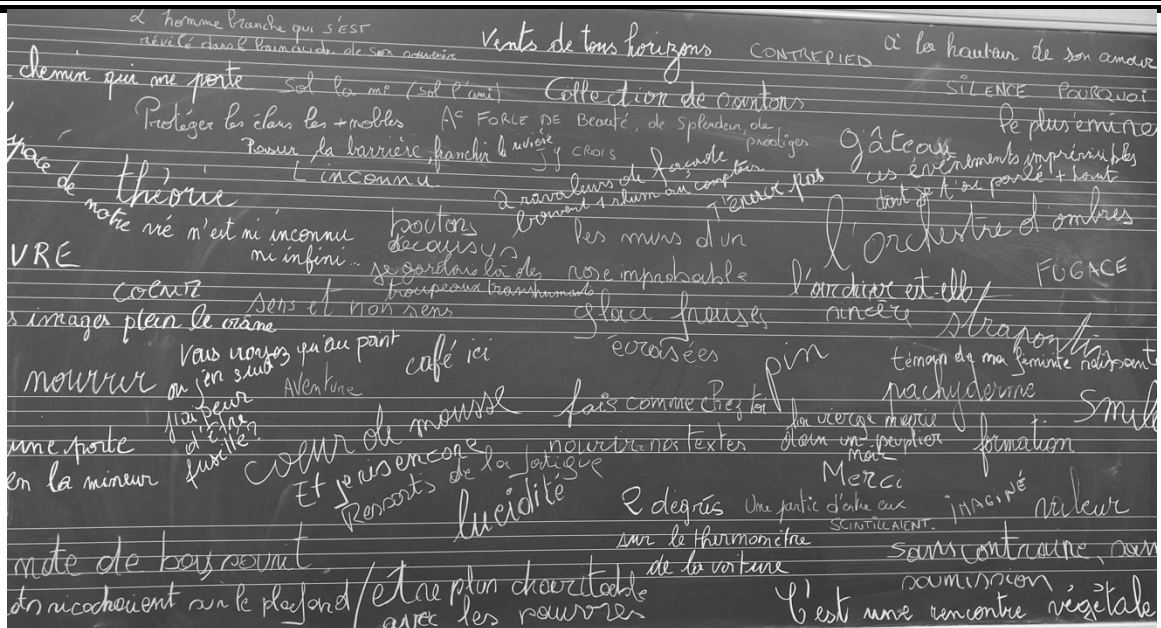 L'homme branche qui s'EST
révélé dans l' de son souvenir
Vents de tous horizons
CONTREPIED
à la hauteur de son amour
chemin qui me porte
Sol la mi (sol l'ami)
Collection de santons
SILENCE POURQUOI
Protéger les élans les + nobles
A FORCE DE Beauté, de splendeur, de prodiges
le plus émine
Passer la barrière, franchir la rivière
J'Y CROIS
gâteau
L'inconnu
2 ravaleurs de façade
boivent 1 rhum au comptoir
T'énerve pas
ces événements imprévisibles
dont je t'ai parlé + haut
théorie
pace de notre vie n'est ni inconnu
ni infini...
boutons
decousus
les murs d'un
rose improbable
l'orchestre d'ombres
VRE
je gardais là des
troupeaux transhumants
FUGACE
coeur
sens et non sens
glaci fraises
écrasées
l'ardeur est-elle
sincère
strapontin
s images plein le crâne
Vous voyez qu'au point
où j'en suis
j'ai peur
d'être
fusillé?
café ici
pin
témoin de ma féminité naissante
nourrir
Aventure
pachyderme
Smile
coeur de mousse
fais comme chez toi
la vierge marie
dans un peuplier
mat
formation
une porte
en la mineur
Et je ris encore
Ressorts de la fatigue
nourrir nos textes
Merci
lucidité
2 degrés
sur le thermomètre
de la voiture
Une partie d'entre eux
SCINTILLAIENT.
IMAGINÉ
valeur
note de bas
sans contrainte, sans
soumission
ots ricochaient sur le plafond
/être plus charitable
avec les pauvres
C'est une rencontre végétale